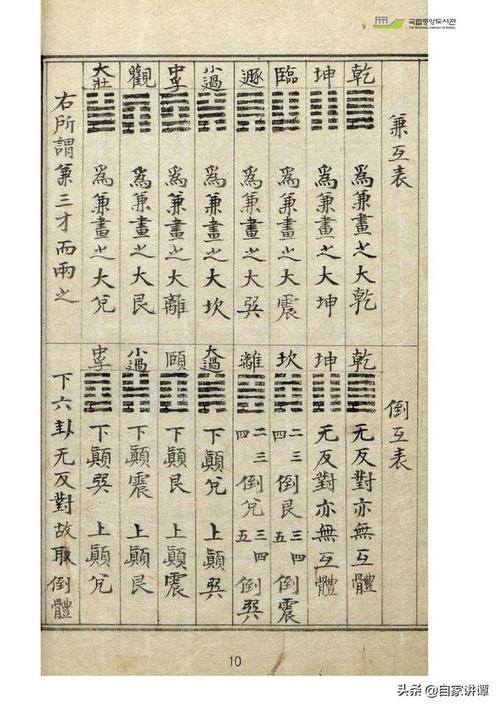 국립중앙도서관
THE NATIONAL LIBRARY OF KOREA
兼互表
乾 爲兼畫之大乾
坤 爲兼畫之大坤
臨 爲兼畫之大震
遯 爲兼畫之大巽
小過 爲兼畫之大坎
中孚 爲兼畫之大離
觀 爲兼畫之大艮
大壯 爲兼畫之大兌
右所謂兼三才而兩之
倒互表
乾 无反對亦無互體
坤 无反對亦無互體
坎 二三四倒艮 三四五倒震
離 二三四倒兌 三四五倒巽
大過 下顚兌 上顚巽
頤 下顚艮 上顚震
小過 下顚震 上顚艮
中孚 下顚巽 上顚兌
下六卦无反對故取倒體
10
头条 @自家讲谭